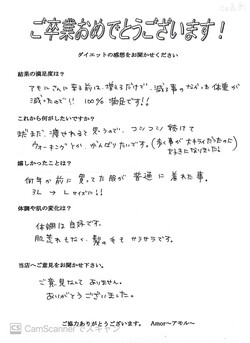 ご卒業おめでとうございます！
ダイエットの感想をお聞かせください
結果の満足度は？
アモルさんに来る前は、増えるだけで、減る事のなかった体重が
減ったので!! 100%満足です!!
これから何がしたいですか？
まだまだ、痩せれると思うので、コツコツ続けて
ウォーキングとか、がんばりたいです。(歩く事が大キライだったのに
好きになりました!)
嬉しかったことは？
何年か前に買ってた服が普通に着れた事。
3L → Lサイズ!!
体調や肌の変化は？
体調は良好です。
肌荒れもなく、髪の毛もサラサラです。
当店へご意見をお聞かせ下さい。
ご意見なんてありません。
ありがとうございました。
ご協力ありがとうございます。 Amor～アモル～
CS CamScannerでスキャン